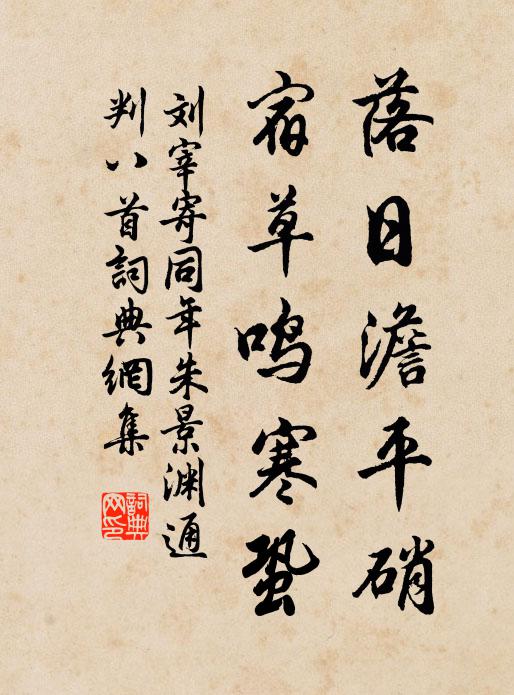 落日澹平硝
宿草鸣寒蛩
刘宰寄同年朱景渊通
判八首詞典網集
詞典
网印